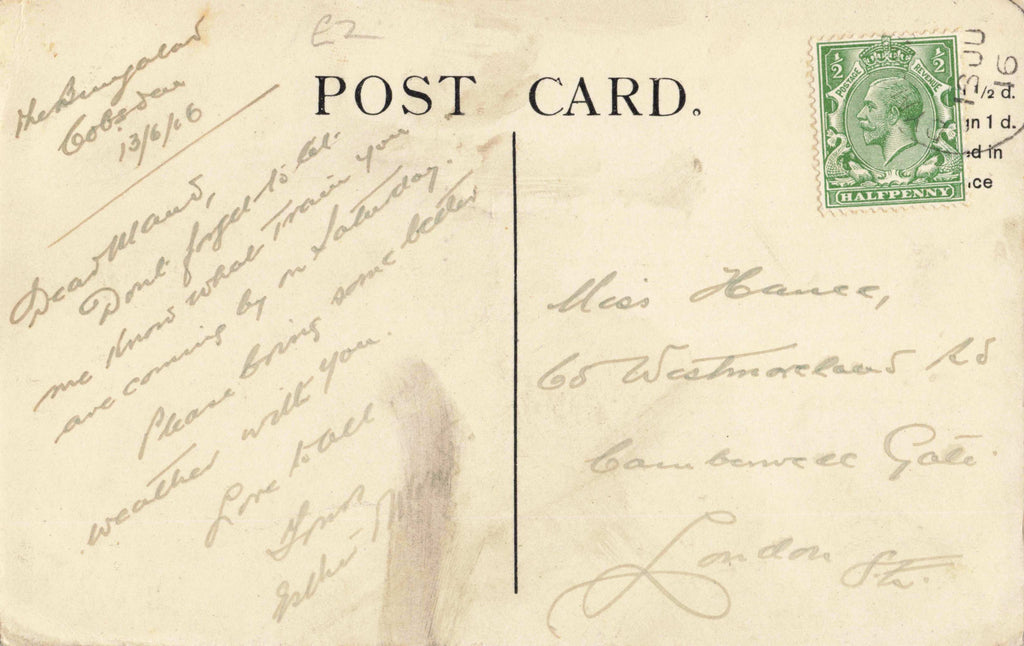 £2
POST CARD.
The Bungalow
Cobden
13/6/16
Dear Maud,
Dont forget to let
me know what train you
are coming by on Saturday.
Please bring some better
weather with you.
Love to all
½ ½
POSTAGE REVENUE
HALFPENNY
13 JU
16
½ d.
gn 1 d.
ed in
ice
Miss Hance,
60 Westmoreland Rd
Camberwell Gate.
London